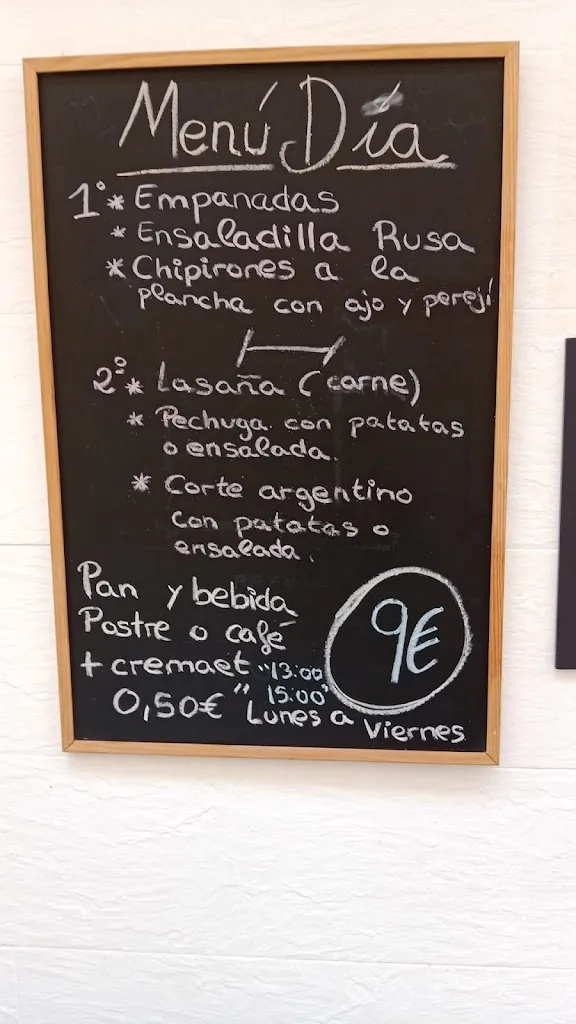 Menú Día
1º * Empanadas
* Ensaladilla Rusa
* Chipirones a la
plancha con ajo y perejí
2º * Lasaña (carne)
* Pechuga con patatas
o ensalada
* Corte argentino
con patatas o
ensalada.
Pan y bebida
Postre o café
+ cremaet "13:00
0,50€ " 15:00"
Lunes a Viernes
9€